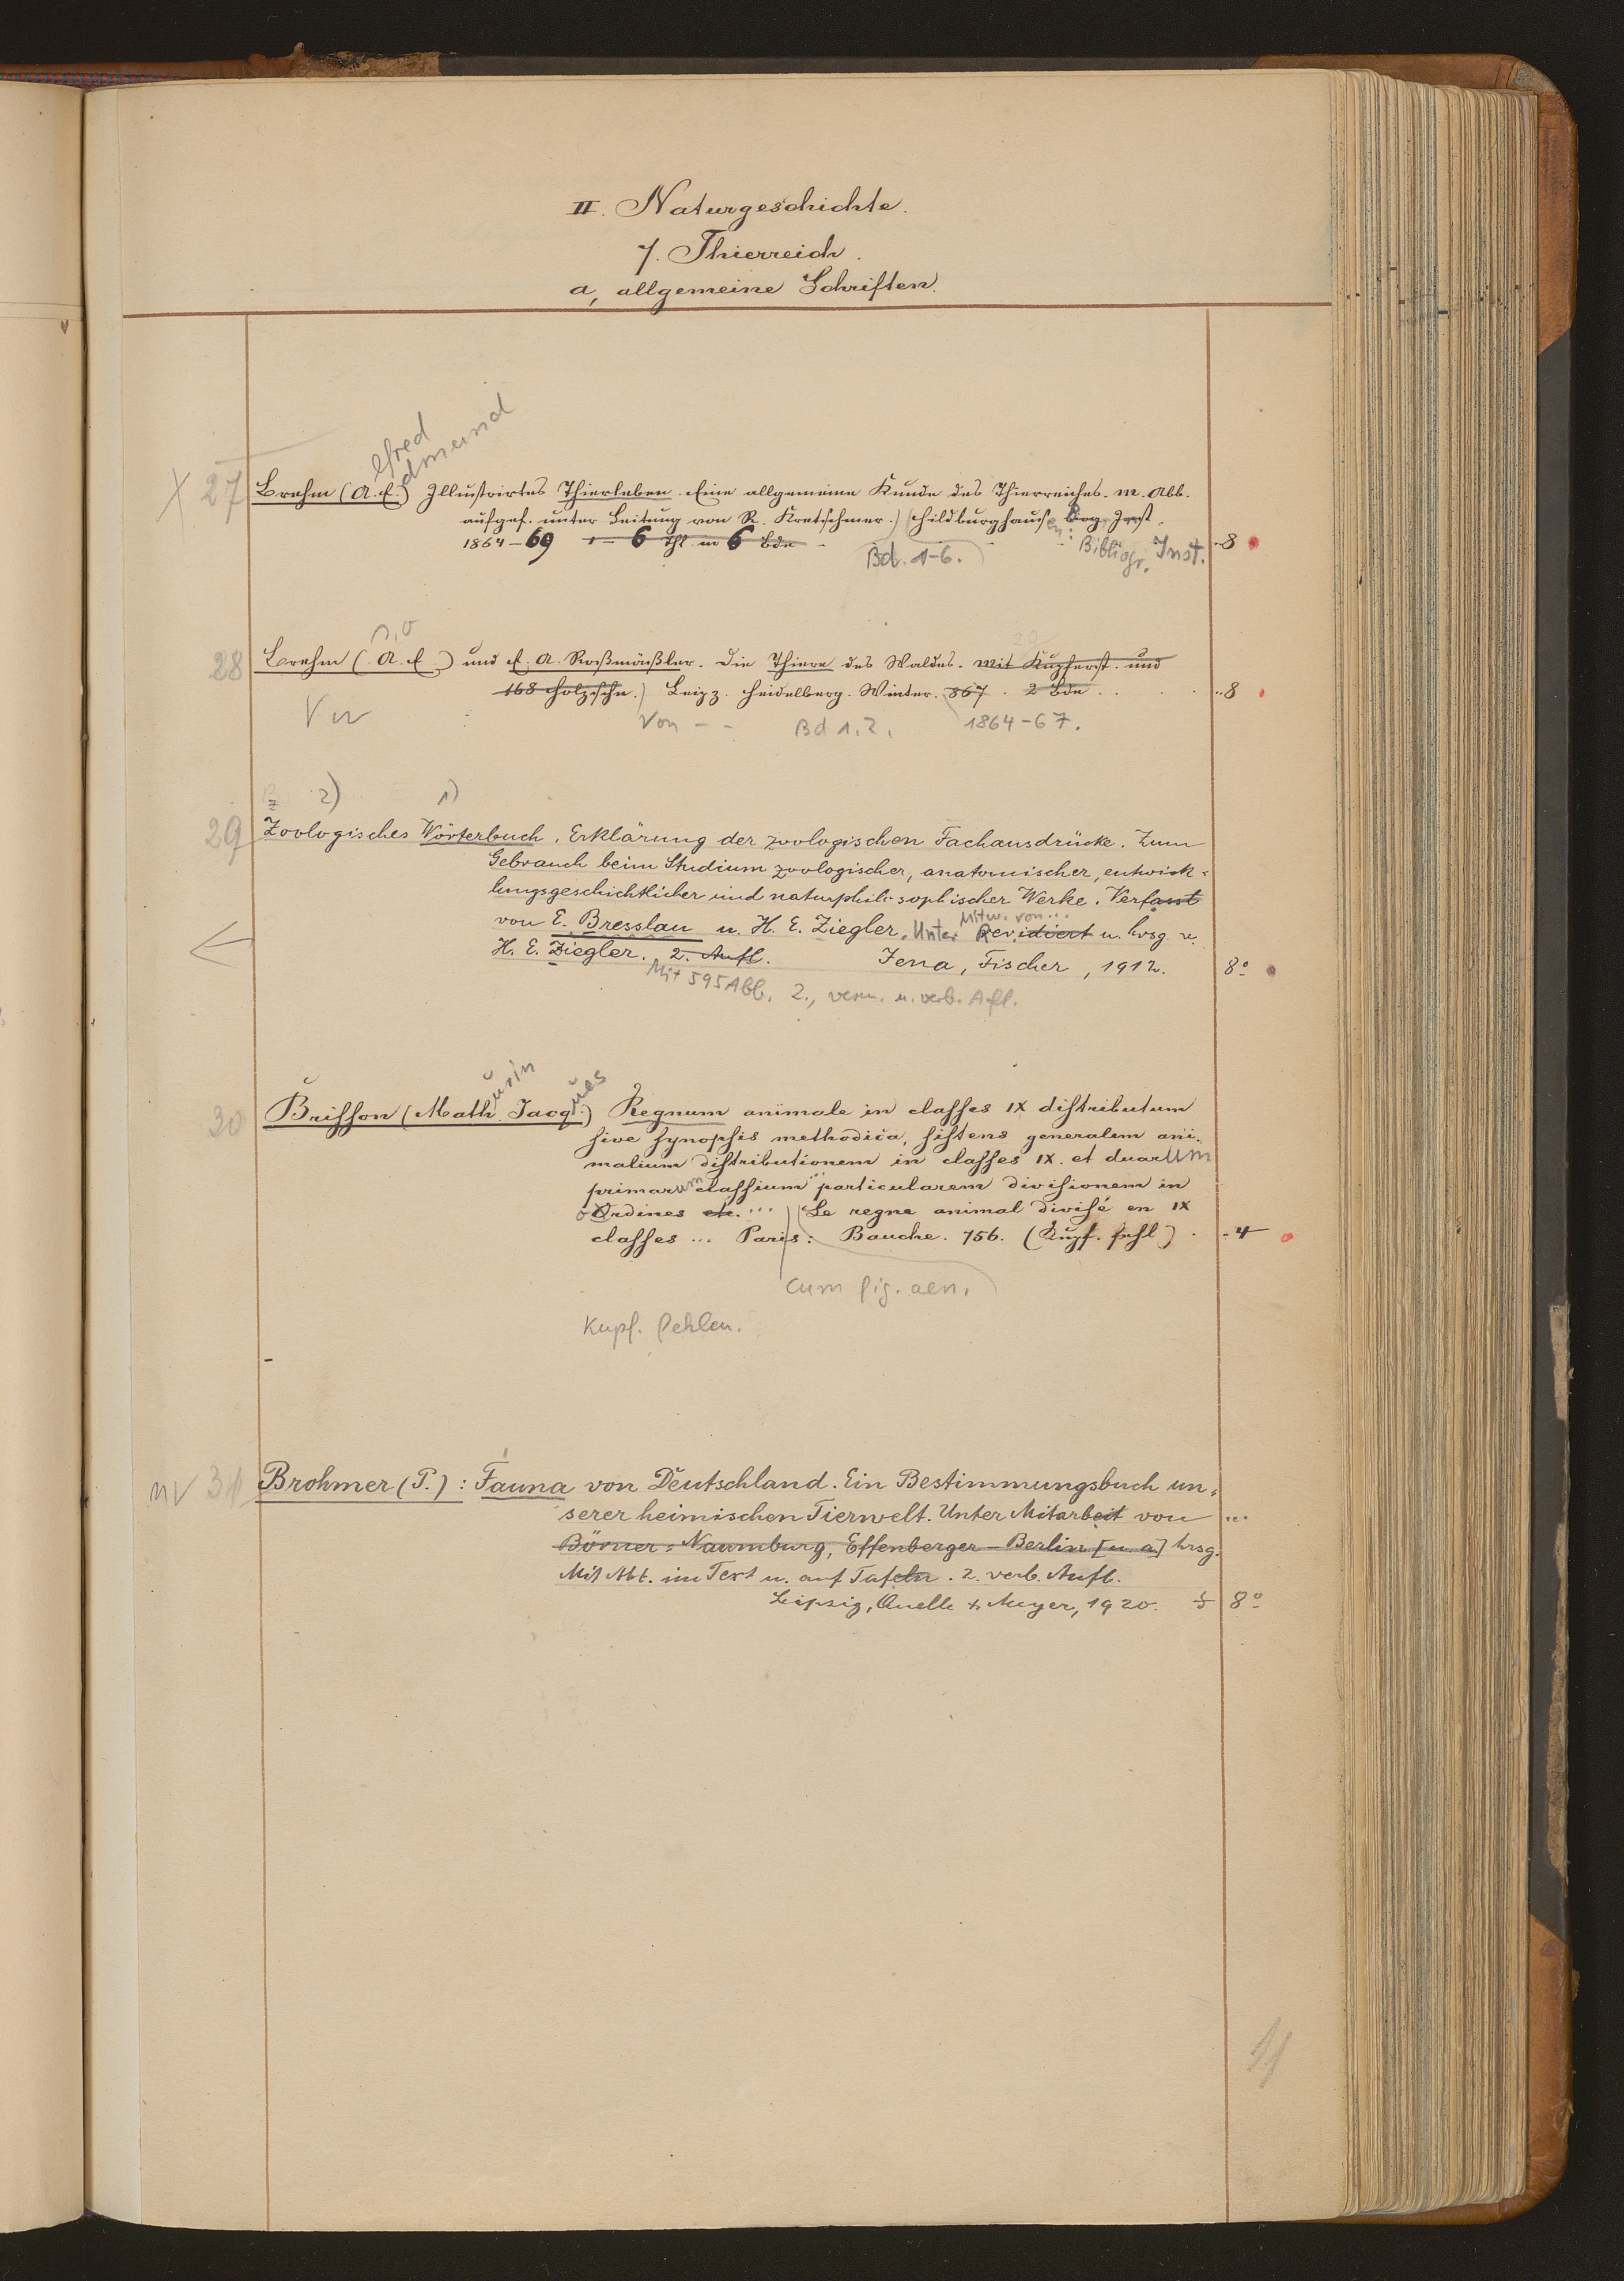 II. Naturgeschichte.
7. Thierreich.
a, allgemeine Schriften.
lfred
dmund
X 27 Brehm (A. E.) Illustrirtes Thierleben. Eine allgemeine Kunde des Thierreiches. M. Abb.
ausgef. unter Leitung von R. Kretschmer.) Hildburghausen: Inst.
1864–69 1–6 Thl. in 6 Bde
Bd. 1–6. Bibliogr. Inst. 8
28 Brehm (A. E.) und E. A. Roßmäßler. Die Thiere des Waldes. Mit Kupferst. und
168 Holzschn.) Leipz. Heidelberg. Winter. 867. 2 Bde. 8
Von – – Bd 1.2. 1864–67.
2) 1)
29 Zoologisches Wörterbuch. Erklärung der zoologischen Fachausdrücke. Zum
Gebrauch beim Studium zoologischer, anatomischer, entwick=
lungsgeschichtlicher und naturphilosophischer Werke. Verfasst
Mitw. von...
von E. Bresslau u. H. E. Ziegler. Unter Revidiert u. hrsg. v.
H. E. Ziegler. 2. Aufl. Jena, Fischer, 1912. 8°
Mit 595 Abb. 2., verm. u. verb. Afl.
urin ues
30 Brisson (Math. Jacq.) Regnum animale in classes IX distributum
sive synopsis methodica, sistens generalem ani-
malium distributionem in classes IX. et duarum
primarum classium particularem divisionem in
ordines etc. ... Le regne animal divisé en IX
classes ... Paris: Bauche. 756. (Kupf. fehl) 4
cum fig. aen.
Kupf. fehlen.
nv 31 Brohmer (P.): Fauna von Deutschland. Ein Bestimmungsbuch un=
serer heimischen Tierwelt. Unter Mitarbeit von ...
Börner=Naumburg, Effenberger–Berlin [u. a] hrsg.
Mit Abb. im Text u. auf Tafeln. 2. verb. Aufl.
Leipzig, Quelle & Meyer, 1920. 8°